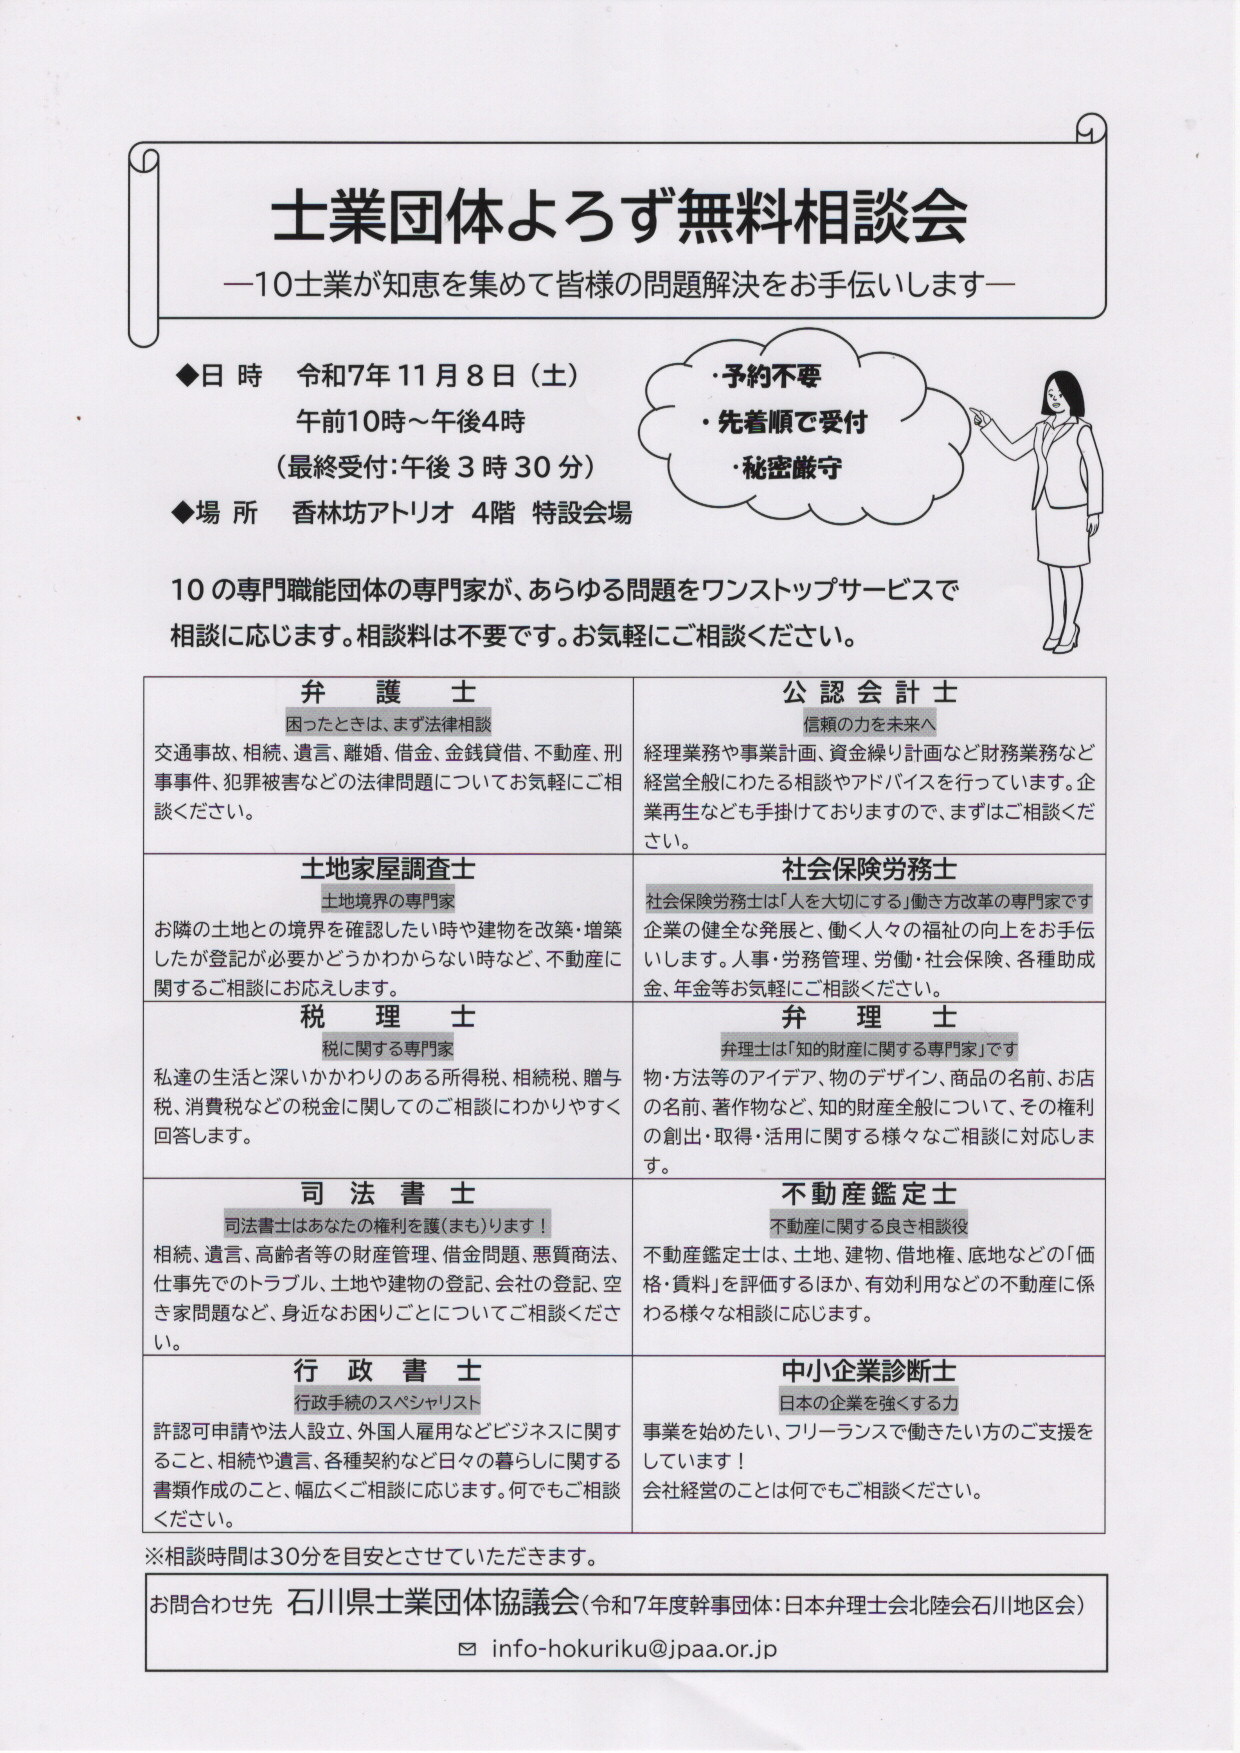 士業団体よろず無料相談会
―10士業が知恵を集めて皆様の問題解決をお手伝いします―
◆日 時 令和7年11月8日（土）
午前10時～午後4時
（最終受付：午後3時30分）
◆場 所 香林坊アトリオ 4階 特設会場
・予約不要
・先着順で受付
・秘密厳守
10の専門職能団体の専門家が、あらゆる問題をワンストップサービスで
相談に応じます。相談料は不要です。お気軽にご相談ください。
弁 護 士
困ったときは、まず法律相談
交通事故、相続、遺言、離婚、借金、金銭貸借、不動産、刑
事事件、犯罪被害などの法律問題についてお気軽にご相
談ください。
公認会計士
信頼の力を未来へ
経理業務や事業計画、資金繰り計画など財務業務など
経営全般にわたる相談やアドバイスを行っています。企
業再生なども手掛けておりますので、まずはご相談くだ
さい。
土地家屋調査士
土地境界の専門家
お隣の土地との境界を確認したい時や建物を改築・増築
したが登記が必要かどうかわからない時など、不動産に
関するご相談にお応えします。
社会保険労務士
社会保険労務士は「人を大切にする」働き方改革の専門家です
企業の健全な発展と、働く人々の福祉の向上をお手伝
いします。人事・労務管理、労働・社会保険、各種助成
金、年金等お気軽にご相談ください。
税 理 士
税に関する専門家
私達の生活と深いかかわりのある所得税、相続税、贈与
税、消費税などの税金に関してのご相談にわかりやすく
回答します。
弁 理 士
弁理士は「知的財産に関する専門家」です
物・方法等のアイデア、物のデザイン、商品の名前、お店
の名前、著作物など、知的財産全般について、その権利
の創出・取得・活用に関する様々なご相談に対応しま
す。
司 法 書 士
司法書士はあなたの権利を護（まも）ります！
相続、遺言、高齢者等の財産管理、借金問題、悪質商法、
仕事先でのトラブル、土地や建物の登記、会社の登記、空
き家問題など、身近なお困りごとについてご相談くださ
い。
不動産鑑定士
不動産に関する良き相談役
不動産鑑定士は、土地、建物、借地権、底地などの「価
格・賃料」を評価するほか、有効利用などの不動産に係
わる様々な相談に応じます。
行 政 書 士
行政手続のスペシャリスト
許認可申請や法人設立、外国人雇用などビジネスに関す
ること、相続や遺言、各種契約など日々の暮らしに関する
書類作成のこと、幅広くご相談に応じます。何でもご相談
ください。
中小企業診断士
日本の企業を強くする力
事業を始めたい、フリーランスで働きたい方のご支援を
しています！
会社経営のことは何でもご相談ください。
※相談時間は30分を目安とさせていただきます。
お問合わせ先 石川県士業団体協議会（令和7年度幹事団体：日本弁理士会北陸会石川地区会）
✉ info-hokuriku@jpaa.or.jp